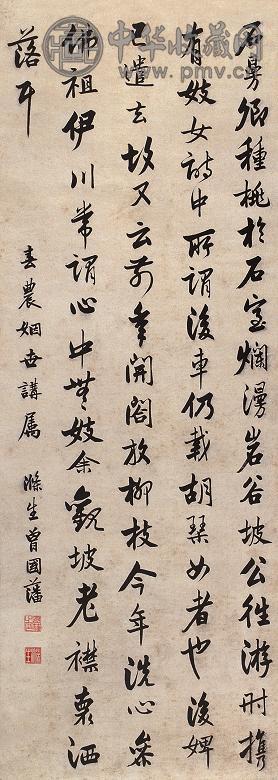 中华收藏网
www.pmv.cn
石曼卿種桃於石室爛漫岩谷坡公往游時攜
有妓女詩中所謂後車仍載胡琴女者也後婢
已遣去故又云前年開閤放柳枝今年洗心參
佛祖伊川常謂心中無妓余觀坡老襟褱洒
落耳
春農姻世講屬 滌生曾國藩